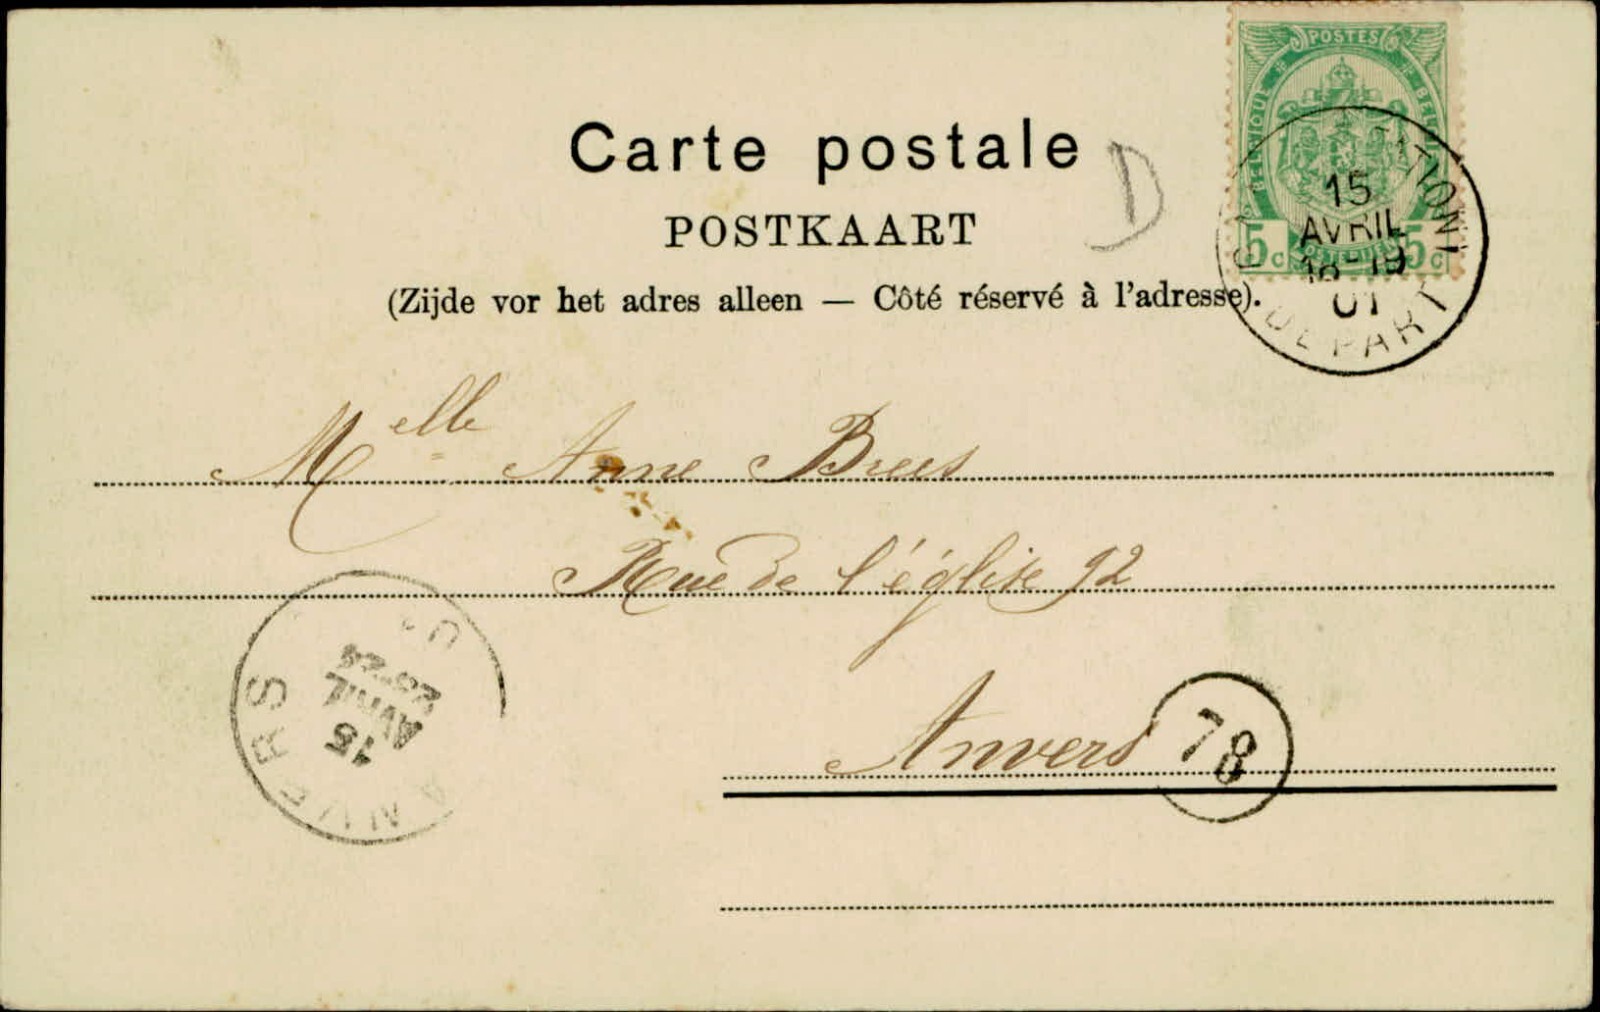 POSTES
BELGIQUE
5c 5c
Carte postale
D
POSTKAART
15
AVRIL
18-19
01
DEPART
(Zijde vor het adres alleen — Côté réservé à l'adresse).
Melle Anne Brees
Rue de l'église 92
Anvers
78
ANVERS
15
AVRIL
01